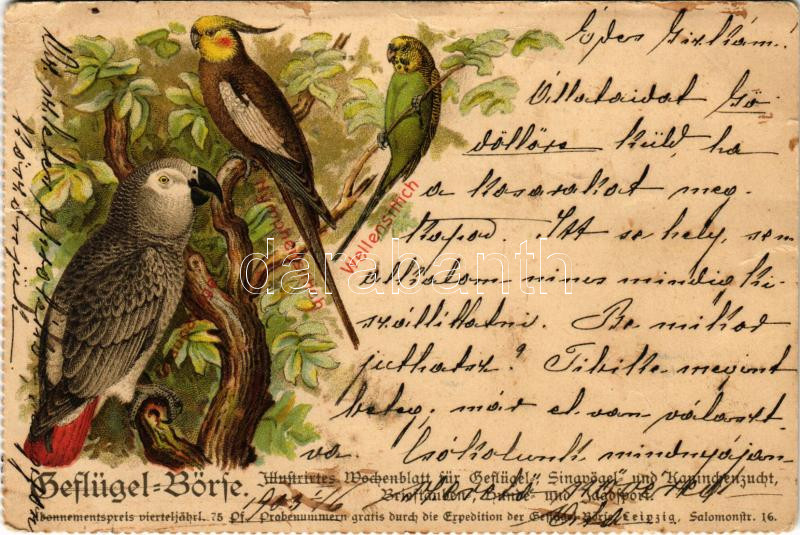 Édes Gizkám!
Állataidat Gö-
döllőre küld, ha
a kosarakat meg-
kapod. Itt se hely, sem
alkalom nincs mindig ki-
szállittatni. Be mikor
juthatsz? Tibike megint
beteg, már el van választ-
va. Csókolunk mindnyájan
Nymphensittich
Wellensittich
darabanth
Geflügel-Börse. Illustrirtes Wochenblatt für Geflügel-, Singvögel- und Kaninchenzucht,
Brieftauben-, Hunde- und Jagdsport.
1903
Abonnementspreis vierteljährl. 75 Pf. Probenummern gratis durch die Expedition der Geflügel-Börse, Leipzig, Salomonstr. 16.